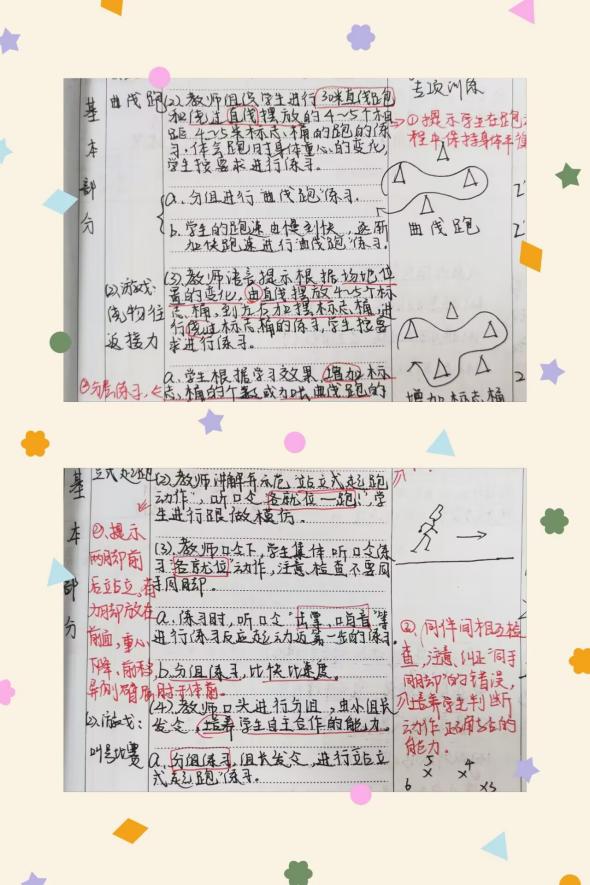 基本部分
曲线跑
(2).教师组织学生进行30米直线跑
和绕过直线摆放的4~5个相
距4~5米标志桶的跑的练
习,体会跑时身体重心的变化,
学生按要求进行练习。
a、分组进行"曲线跑"练习。
b、学生的跑速由慢到快,逐渐
加快跑速进行"曲线跑"练习。
(2).游戏:
物往
返接力
(3)教师语言提示根据场地位
置的变化,由直线摆放4~5个标
志桶,到左右加摆标志桶,进
行绕过标志桶的练习,学生按要
求进行练习。
a、学生根据学习效果,增加标
志桶的个数或为
曲线跑的
③分层练习.
专项训练
①提示学生在跑
程中,保持身体平
曲线跑
增加标志桶
基本部分
立式起跑
(2).教师讲解并示范"站立式起跑
动作",听口令"各就位—跑!",学
生进行跟做模仿。
(3).教师口令下,学生集体听口令练
习"各就位"动作,注意检查不要同
手同脚。
a、练习时,听口令"击掌、哨音"等
进行练习反应起动迈第一步的练习。
b、分组练习,比快比速度。
(4).教师口头进行分组,由小组长
发令,培养学生自主合作的能力。
a、分组练习,组长发令,进行"站立
式起跑"练习。
②、提示
两脚前
后站立,有
力脚放在
前面,重心
下降,前移,
(2)、游戏:
叫号比赛
②、同伴间相互检
查,注意、纠正"同手
同脚"的错误,
培养学生判断
动作正确与否的
能力。
5 4
x x
6 x3